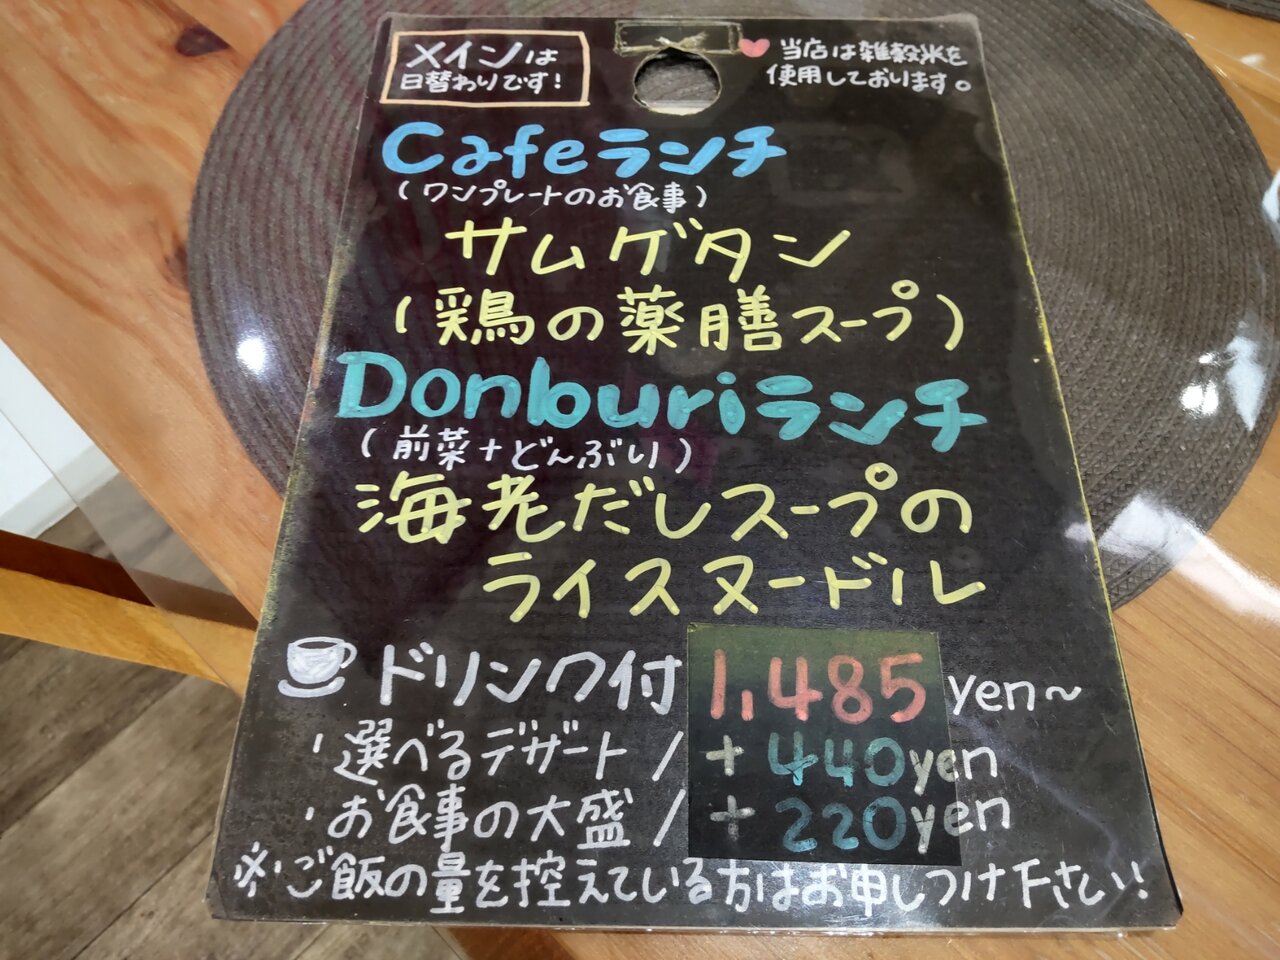 メインは
日替わりです!
当店は雑穀米を
使用しております。
Cafeランチ
(ワンプレートのお食事)
サムゲタン
(鶏の薬膳スープ)
Donburiランチ
(前菜+どんぶり)
海老だしスープの
ライスヌードル
ドリンク付 1,485yen~
・選べるデザート/+440yen
・お食事の大盛/+220yen
※ご飯の量を控えている方はお申しつけ下さい!